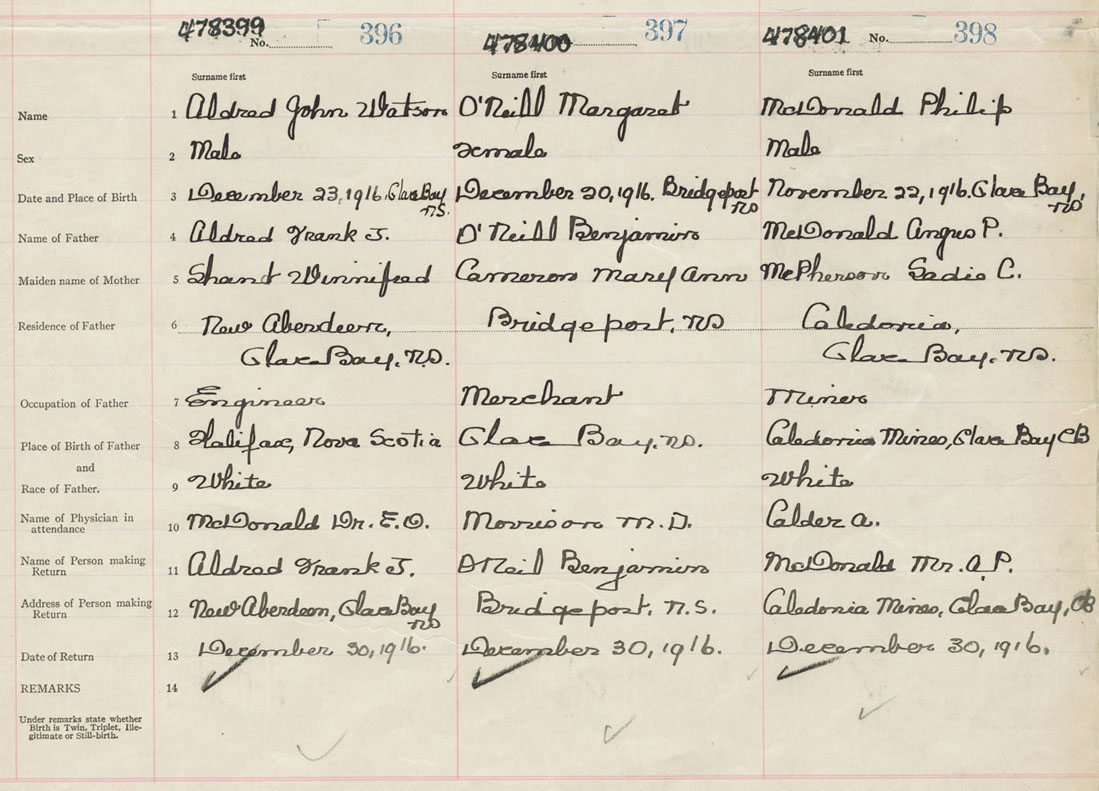 478399 No. 396 478400 397 478401 No. 398
Surname first Surname first Surname first
Name 1 Aldred John Watson O'Neill Margaret McDonald Philip
Sex 2 Male Female Male
Date and Place of Birth 3 December 23, 1916. Glace Bay N.S. December 20, 1916. Bridgeport NS November 22, 1916. Glace Bay, NS
Name of Father 4 Aldred Frank J. O'Neill Benjamin McDonald Angus P.
Maiden name of Mother 5 Shand Winnifred Cameron Mary Ann McPherson Sadie C.
Residence of Father 6 New Aberdeen, Bridgeport, NS Caledonia,
Glace Bay, N.S. Glace Bay, NS.
Occupation of Father 7 Engineer Merchant Miner
Place of Birth of Father 8 Halifax, Nova Scotia Glace Bay, NS. Caledonia Mines, Glace Bay CB
and
Race of Father. 9 White White White
Name of Physician in attendance 10 McDonald Dr. E.O. Morrison M.D. Calder A.
Name of Person making Return 11 Aldred Frank J. O'Neil Benjamin McDonald Mr. A.P.
Address of Person making Return 12 New Aberdeen, Glace Bay NS Bridgeport, N.S. Caledonia Mines, Glace Bay, CB
Date of Return 13 December 30, 1916. December 30, 1916. December 30, 1916.
REMARKS 14
Under remarks state whether
Birth is Twin, Triplet, Ille-
gitimate or Still-birth.